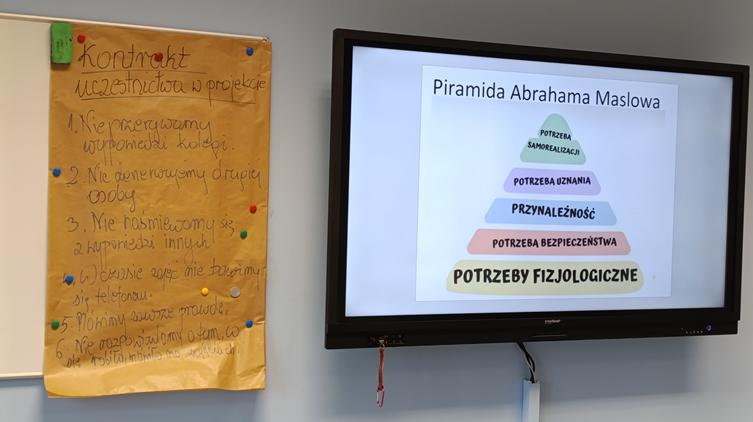 Kontrakt
uczestnictwa w projekcie
1. Nie przerywamy
wypowiedzi kolegi.
2. Nie denerwujemy drugiej
osoby
3. Nie naśmiewamy się
z wypowiedzi innych
4. W czasie zajęć nie bawimy
się telefonem.
5. Mówimy zawsze prawdę,
6. Nie rozpowiadamy o tym, co
się
Piramida Abrahama Maslowa
POTRZEBA
SAMOREALIZACJI
POTRZEBA UZNANIA
PRZYNALEŻNOŚĆ
POTRZEBA BEZPIECZEŃSTWA
POTRZEBY FIZJOLOGICZNE